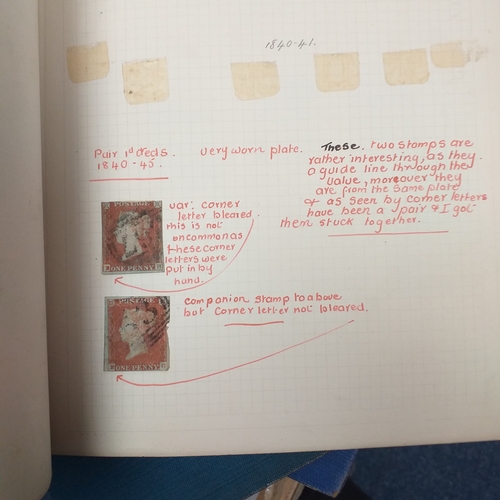 1840-41.
Pair 1d reds.
1840-45.
very worn plate.
These. two stamps are
rather interesting, as they.
a guide line through the
value, moreover they
are from the same plate
& as seen by corner letters
have been a pair & I got
them stuck together.
var: corner
letter bleared.
this is not
oncommon as
these corner
letters were
put in by
hand.
POSTAGE
ONE PENNY
companion stamp to above
but corner letter not bleared.
POSTAGE
ONE PENNY